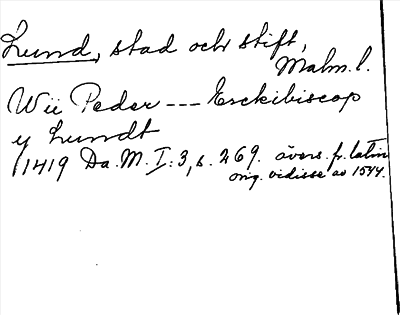 Lund, stad och stift,
Malm. l.
Wii Peder --- Erckibiscop
y Lundt
1419 Da. M. I: 3, s. 269. övers. fr. latin
orig. vidisse av 1544.